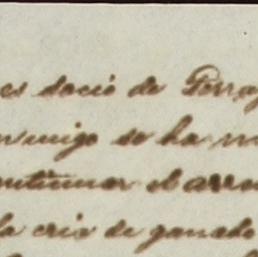 es socio de Ferra
enmigo se ha m
ontinuar el arre
la cria de ganado